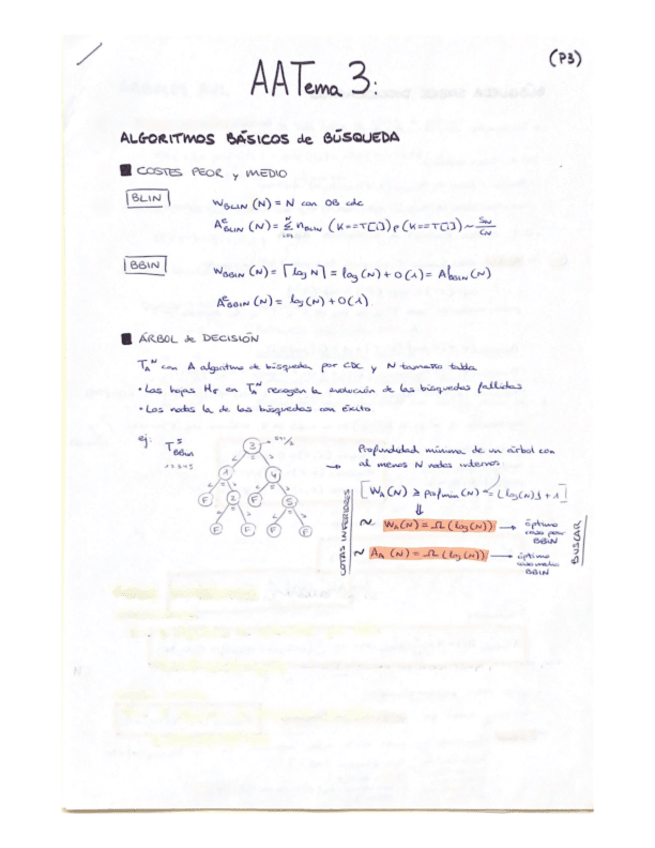 (P3)
AATema 3:
ALGORITMOS BÁSICOS de BÚSQUEDA
COSTES PEOR y MEDIO
BLIN
W_BLIN (N) = N con OB cdc
A^e_BLIN (N) = Σ n_BLIN (K==T[i]) p (K==T[i]) ~ S_N/C_N
BBIN
W_BBIN (N) = ⌈log N⌉ = log (N) + O(1) = A^f_BBIN (N)
A^e_BBIN (N) = log (N) + O(1)
ÁRBOL de DECISIÓN
T_A^N con A algoritmo de búsqueda por CDC y N tamaño tabla
• Las hojas H_F en T_A^N recogen la evolución de las búsquedas fallidas
• Los nodos la de las búsquedas con éxito
ej: T^5_BBin
1 2 3 4 5
3
1 4
F 2 F 5
F F F F
Profundidad mínima de un árbol con
al menos N nodos internos
[W_A(N) ≥ prof min (N) = ⌊log(N)⌋ + 1]
⇓
COTAS INFERIORES
~ W_A(N) = Ω (log(N)) → óptimo caso peor BBIN
~ A_A (N) = Ω (log(N)) → óptimo caso medio BBIN
BUSCAR